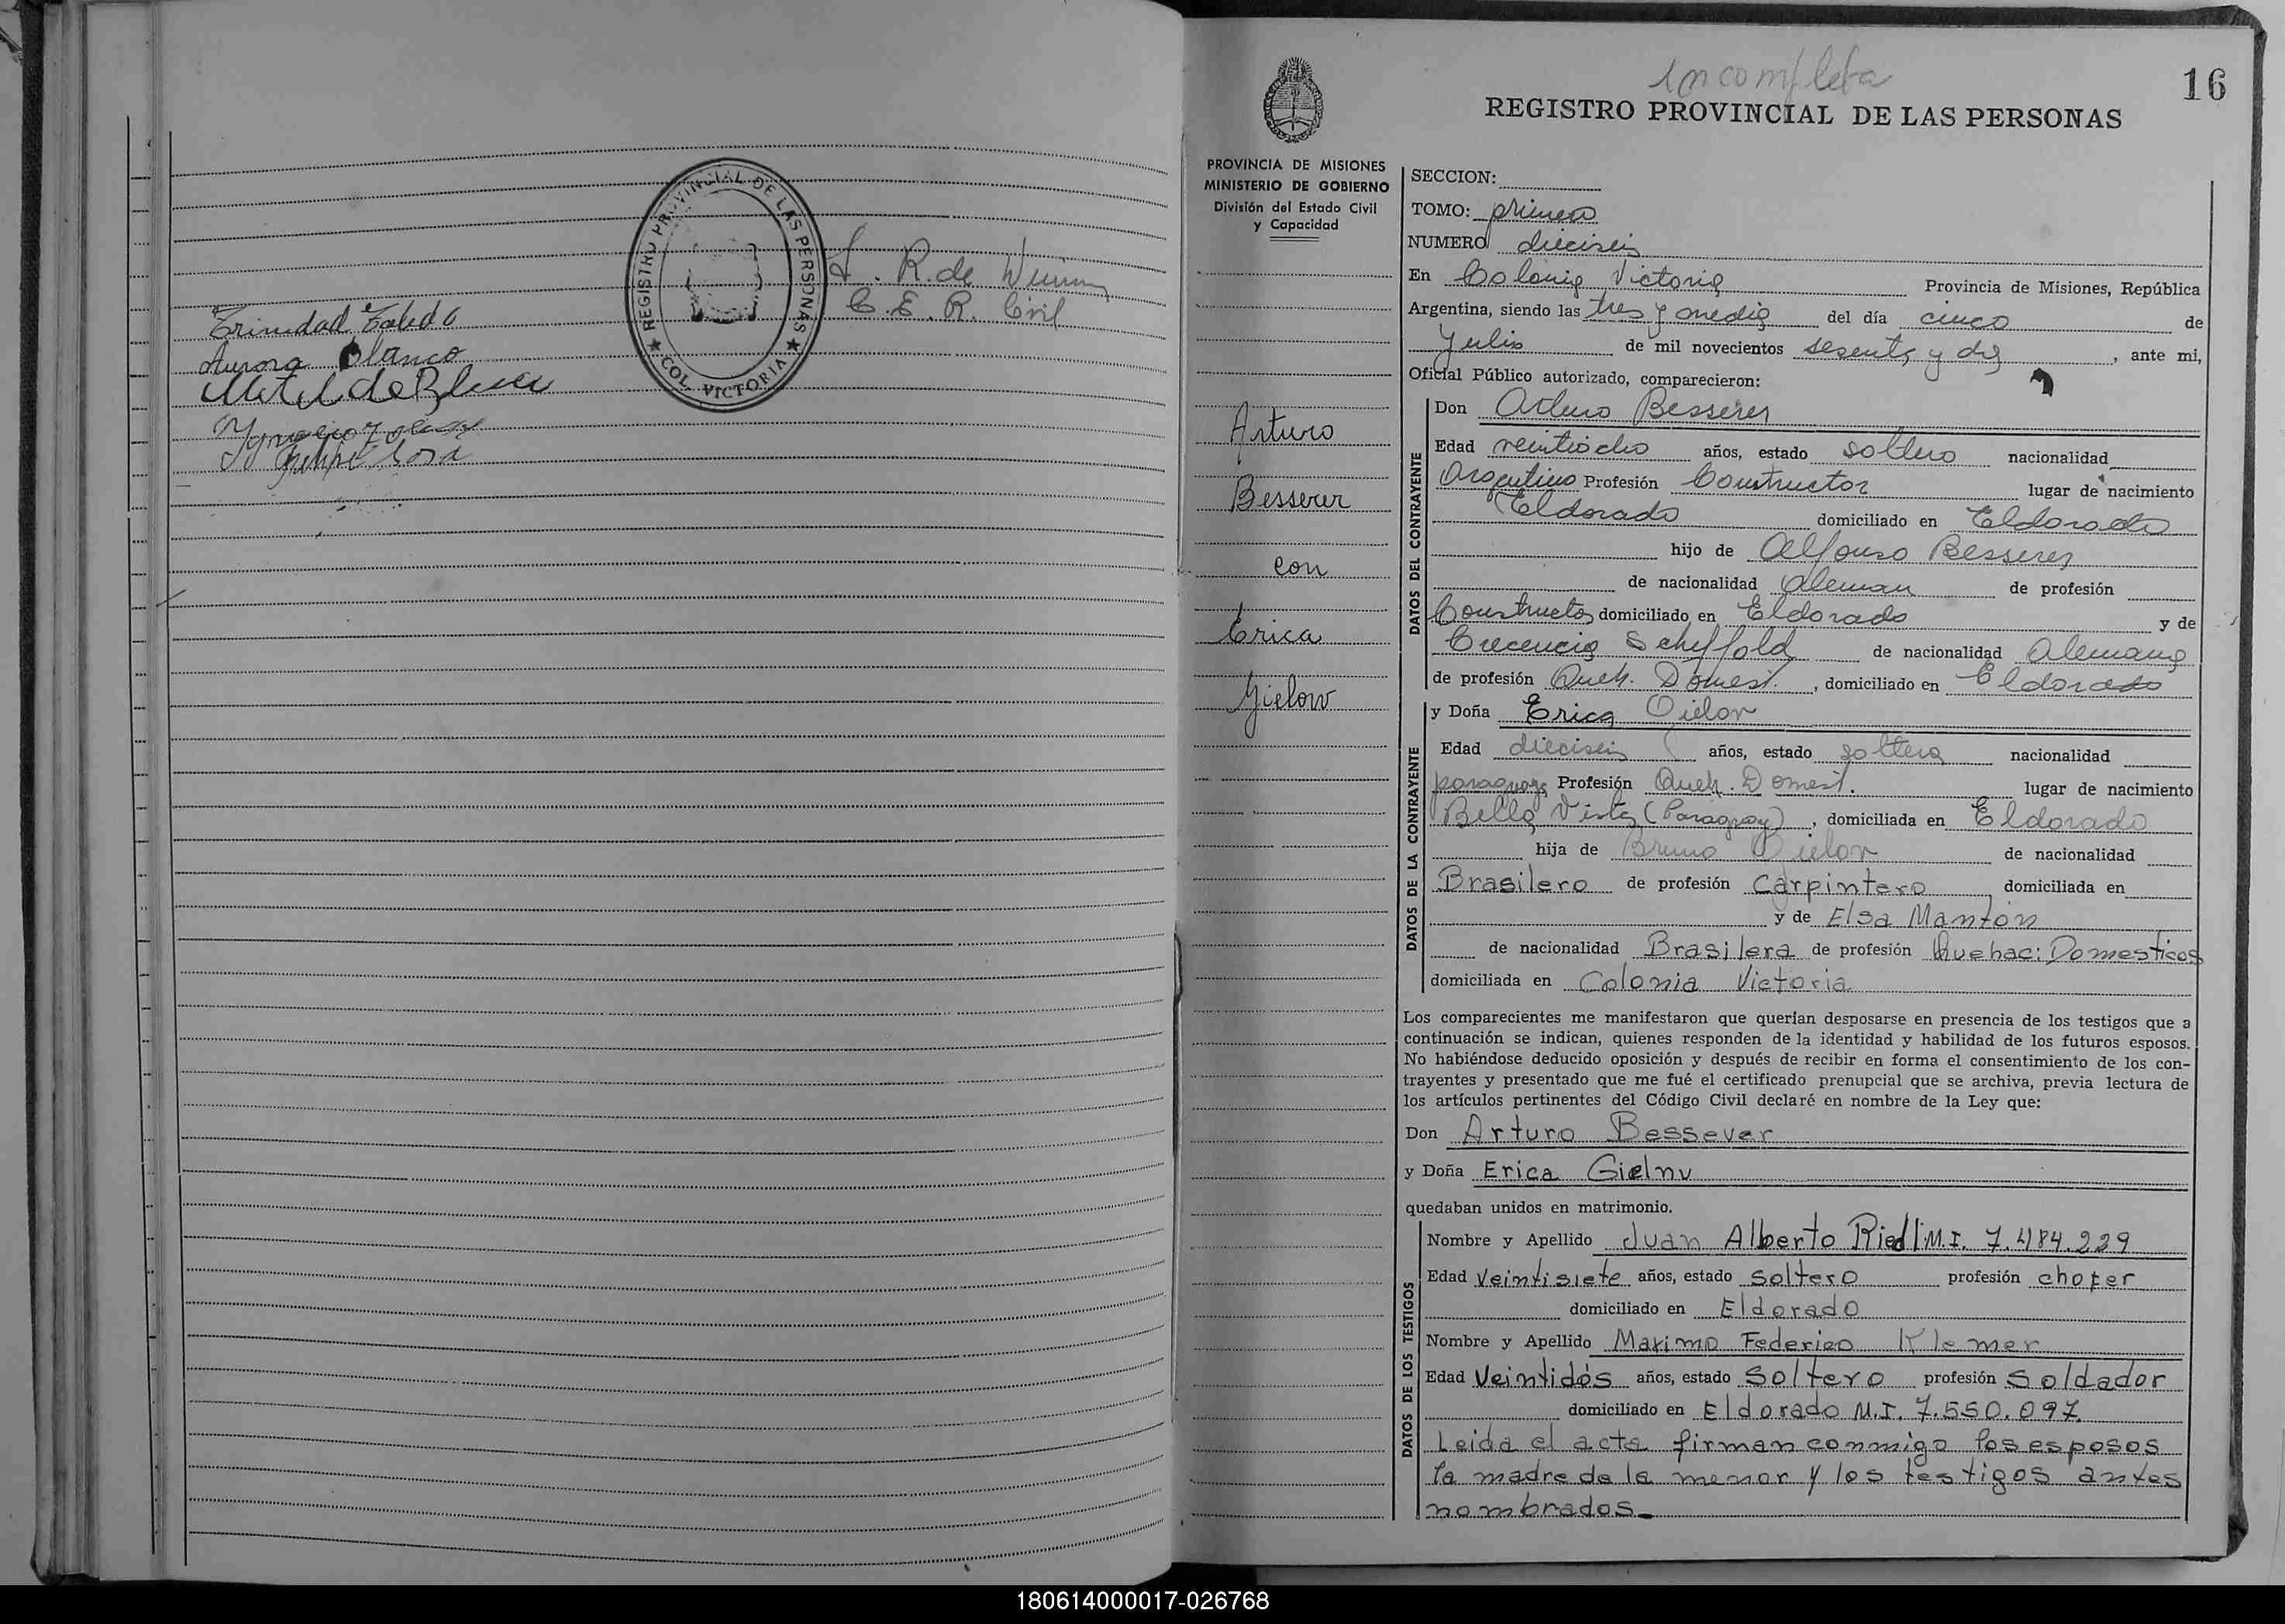 REGISTRO PROVINCIAL DE LAS PERSONAS
COL. VICTORIA
R. de
C. E. R. Civil
Trinidad Toledo
Aurora Blanco
Matilde Blanco
Felipe Sosa
incompleta
16
REGISTRO PROVINCIAL DE LAS PERSONAS
PROVINCIA DE MISIONES
MINISTERIO DE GOBIERNO
División del Estado Civil
y Capacidad
Arturo
Besserer
con
Erica
Gielow
SECCION:
TOMO: primero
NUMERO dieciseis
En Colonia Victoria Provincia de Misiones, República
Argentina, siendo las tres y media del día cinco de
Julio de mil novecientos sesenta y dos, ante mi,
Oficial Público autorizado, comparecieron:
DATOS DEL CONTRAYENTE
Don Arturo Besserer
Edad veintiocho años, estado soltero nacionalidad
Argentino Profesión Constructor lugar de nacimiento
Eldorado domiciliado en Eldorado
hijo de Alfonso Besserer
de nacionalidad Aleman de profesión
Constructor domiciliado en Eldorado y de
Crecencia Scheffold de nacionalidad Alemana
de profesión Queh. Domest., domiciliado en Eldorado
DATOS DE LA CONTRAYENTE
y Doña Erica Gielow
Edad dieciseis años, estado soltera nacionalidad
paraguaya Profesión Queh. Domest. lugar de nacimiento
Bella Vista (Paraguay), domiciliada en Eldorado
hija de Bruno Gielow de nacionalidad
Brasilero de profesión Carpintero domiciliada en
y de Elsa Mantón
de nacionalidad Brasilera de profesión Quehac: Domesticos
domiciliada en Colonia Victoria
Los comparecientes me manifestaron que querían desposarse en presencia de los testigos que a
continuación se indican, quienes responden de la identidad y habilidad de los futuros esposos.
No habiéndose deducido oposición y después de recibir en forma el consentimiento de los con-
trayentes y presentado que me fué el certificado prenupcial que se archiva, previa lectura de
los artículos pertinentes del Código Civil declaré en nombre de la Ley que:
Don Arturo Bessever
y Doña Erica Gielnv
quedaban unidos en matrimonio.
DATOS DE LOS TESTIGOS
Nombre y Apellido Juan Alberto Riedl M.I. 7.484.229
Edad Veintisiete años, estado Soltero profesión chofer
domiciliado en Eldorado
Nombre y Apellido Maximo Federico Klemer
Edad Veintidós años, estado Soltero profesión Soldador
domiciliado en Eldorado M.I. 7.550.097
Leida el acta firman conmigo los esposos
la madre de la menor y los testigos antes
nombrados.
180614000017-026768